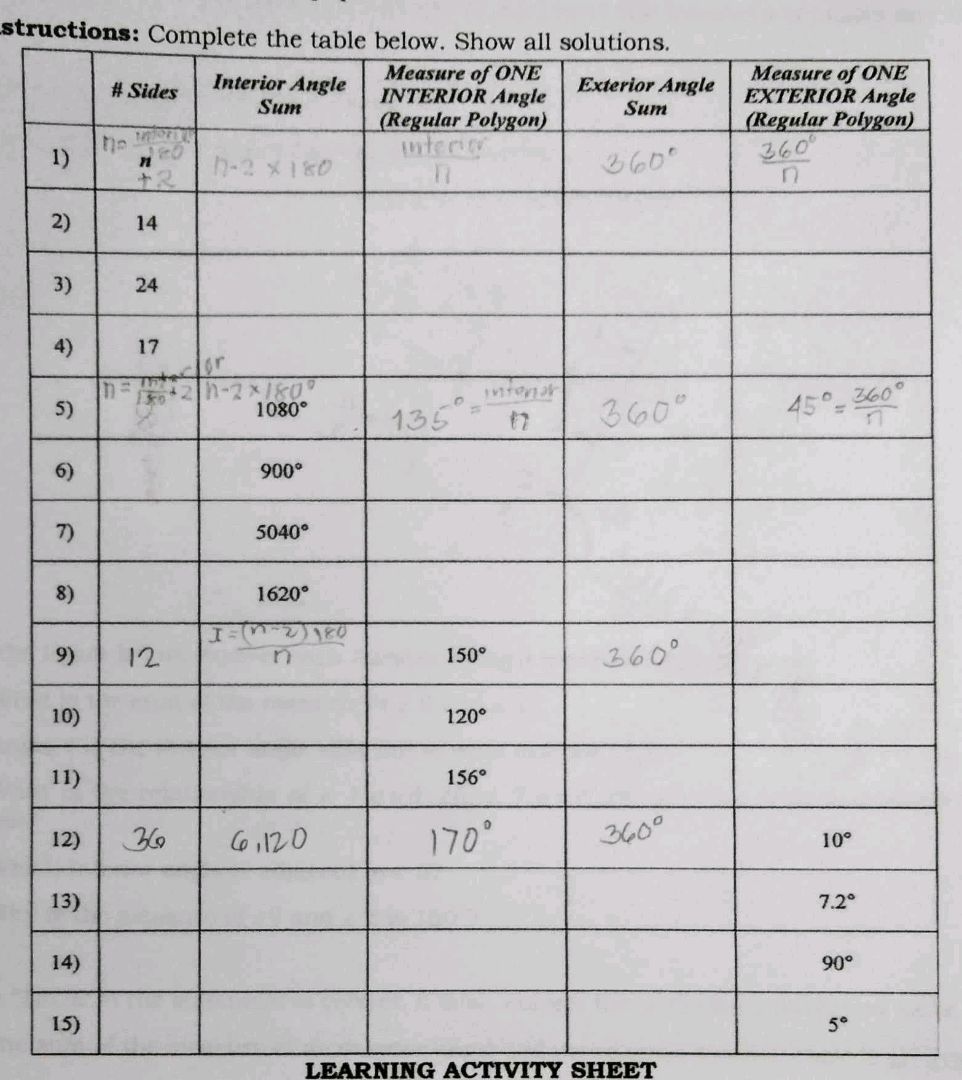 structions: Complete the table below. Show all solutions.
# Sides Interior Angle Sum Measure of ONE INTERIOR Angle (Regular Polygon) Exterior Angle Sum Measure of ONE EXTERIOR Angle (Regular Polygon)
1) n= interior/180 n +2 n-2 x 180 interior/n 360° 360°/n
2) 14
3) 24
4) 17
5) n= inter/180 +2 n-2 x 180° 1080° 135° = interior/n 360° 45° = 360°/n
6) 900°
7) 5040°
8) 1620°
9) 12 I = (n-2)180/n 150° 360°
10) 120°
11) 156°
12) 36 6,120 170° 360° 10°
13) 7.2°
14) 90°
15) 5°
LEARNING ACTIVITY SHEET